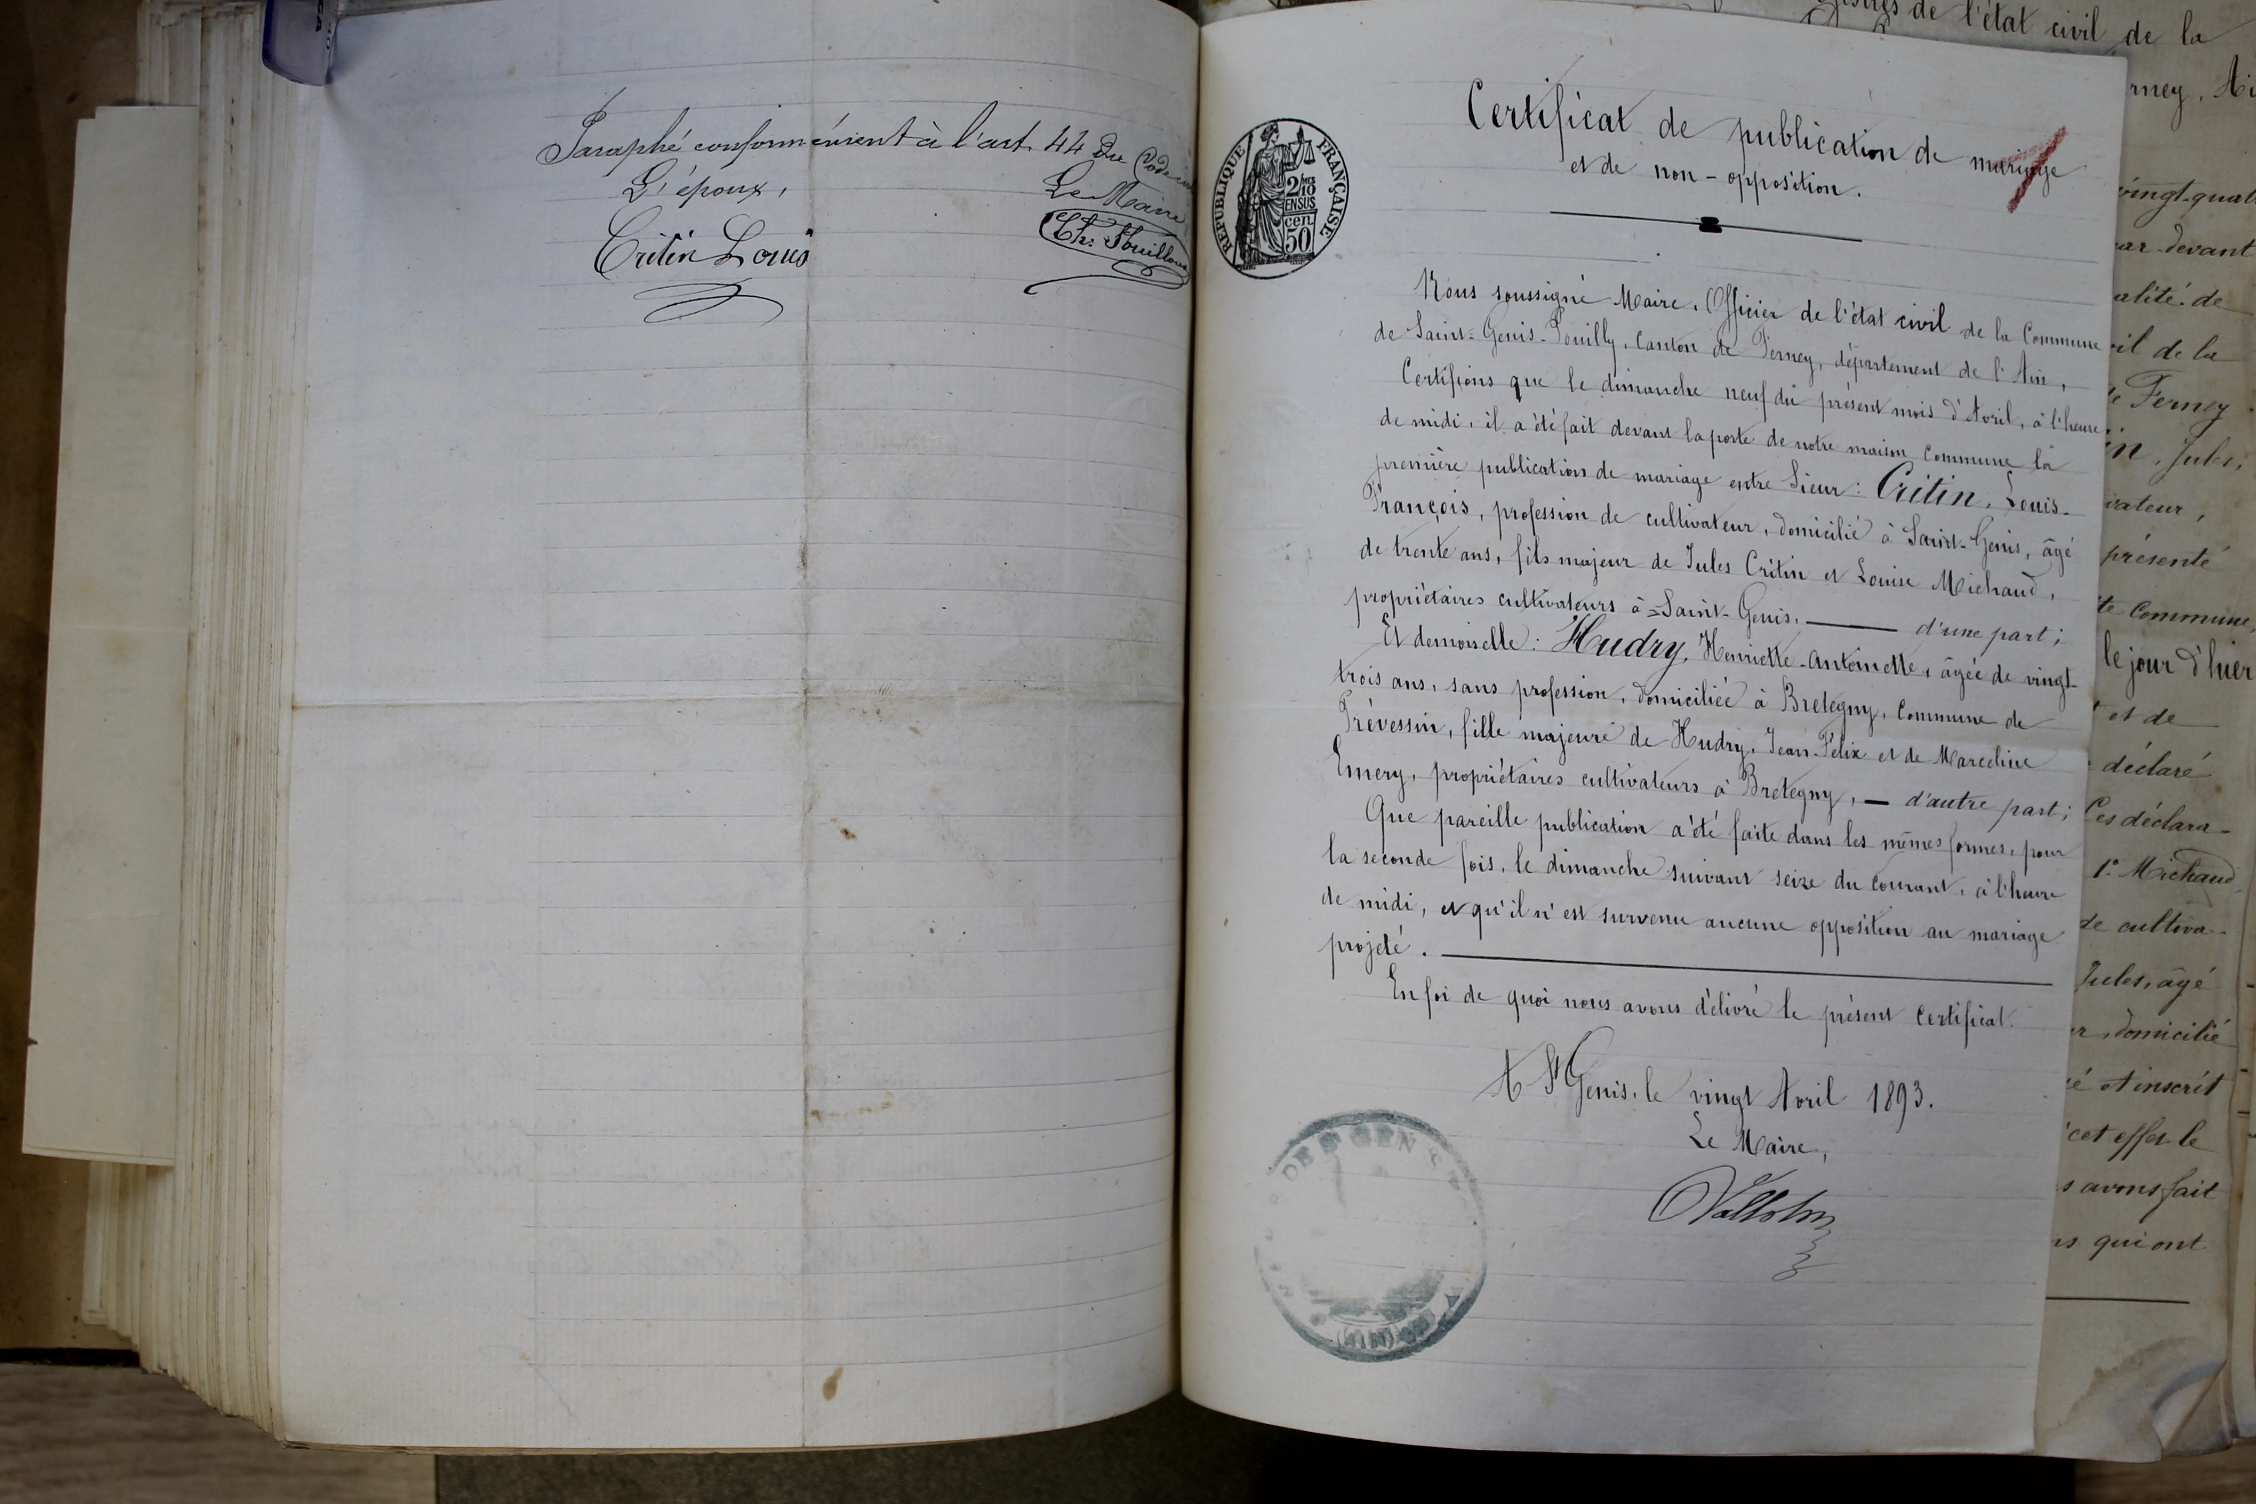 Paraphé conformément à l'art. 44 du Code
L'époux,
Le Maire
Critin Louis
Certificat de publication de mariage
et de non-opposition.
REPUBLIQUE FRANÇAISE
2/10
EN SUS
cen.
50
Nous soussigné Maire, Officier de l'état civil de la Commune
de Saint-Genis-Pouilly, Canton de Ferney, département de l'Ain,
Certifions que le dimanche neuf du présent mois d'Avril, à l'heure
de midi, il a été fait devant la porte de notre maison commune la
première publication de mariage entre Sieur : Critin, Louis-
François, profession de cultivateur, domicilié à Saint-Genis, âgé
de trente ans, fils majeur de Jules Critin et Louise Michaud,
propriétaires cultivateurs à Saint-Genis, — d'une part ;
Et demoiselle : Hudry, Henriette-Antoinette, âgée de vingt-
trois ans, sans profession, domiciliée à Bretegny, Commune de
Prévessin, fille majeure de Hudry, Jean-Félix et de Marceline
Emery, propriétaires cultivateurs à Bretegny, — d'autre part ;
Que pareille publication a été faite dans les mêmes formes, pour
la seconde fois, le dimanche suivant seize du courant, à l'heure
de midi, et qu'il n'est survenu aucune opposition au mariage
projeté.
En foi de quoi nous avons délivré le présent certificat.
A St Genis, le vingt Avril 1893.
Le Maire,
DE ST GEN
(AIN)
de l'état civil de la
rney, Ai
vingt-quat
ar-devant
alité de
vil de la
de Ferney
in, Jules,
vateur,
présenté
te commune,
le jour d'hier
et de
déclaré
Ces déclara-
1° Michaud,
de cultiva-
Jules, âgé
er, domicilié
é et inscrit
cet effet le
s avons fait
ns qui ont